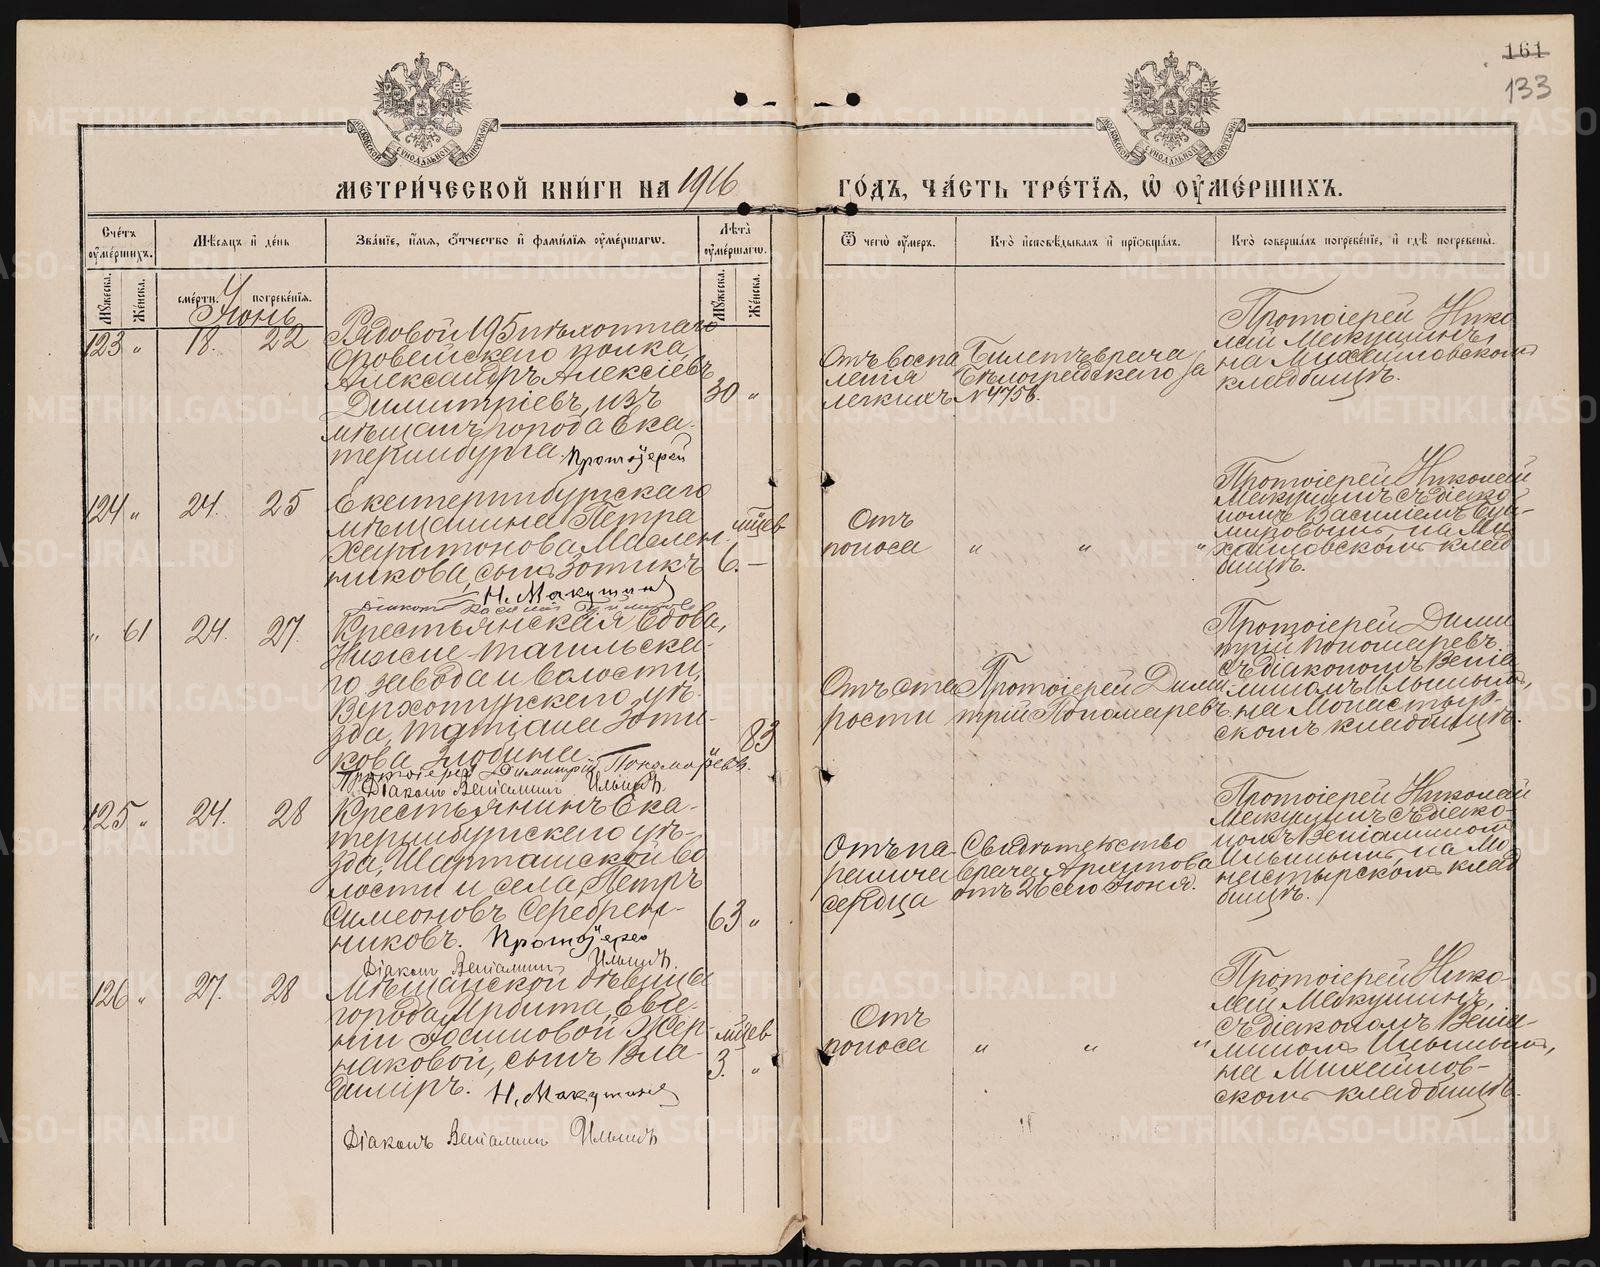 161
133
МЕТРИ́ЧЕСКОЙ КНИ́ГИ НА 1916
ГО́ДЪ, ЧА́СТЬ ТРЕ́ТЇѦ, Ѡ҆ ОУ҆МЕ́РШИХЪ.
Счетъ оумершихъ.
Мѣсяцъ и день
Званіе, имя, отчество и фамилія оумершагѡ.
Лѣта оумершагѡ.
Ѿ чегѡ оумеръ.
Кто исповѣдывалъ и прїѡбщалъ.
Кто совершалъ погребеніе, и гдѣ погребены.
Мужеска.
Женска.
смерти.
погребенія.
Мужеска.
Женска.
Іюнь
123 „ 18. 22
Рядовой 195 пѣхотнаго
Оровайскаго полка,
Александръ Алексіевъ
Димитріевъ, изъ
мѣщанъ города Ека-
теринбурга. Протоіерей
30 „
Отъ воспа
ленія
легкихъ
Билетъ врача
Бѣлоградскаго за
№ 4756.
Протоіерей Нико
лай Макушинъ,
на Михайловскомъ
кладбищѣ.
124 „ 24. 25
Екатеринбургскаго
мѣщанина Петра
Харитонова Маслен-
никова, сынъ Зотикъ
Н. Макушинъ
Діаконъ Василій
мцев
6. –
Отъ
поноса
„ „ „
Протоіерей Николай
Макушинъ съ діако
номъ Василіемъ
на Ми
хайловскомъ клад
бищѣ.
„ 61 24. 27.
Крестьянская вдова,
Нижне-тагильска-
го завода и волости,
Верхотурскаго уѣ-
зда, Татіана Зоти-
кова Злобина.
Протоіерей Димитрій Пономаревъ.
Діаконъ Веніаминъ Ильинъ
83
Отъ ста
рости
Протоіерей Дими
трій Пономаревъ
Протоіерей Дими
трій Пономаревъ
съ діакономъ Веніа
миномъ Ильинымъ,
на Монастыр-
скомъ кладбищѣ.
125 „ 24. 28
Крестьянинъ Ека-
теринбургскаго уѣ-
зда, Шарташской во
лости и села, Петръ
Симеоновъ Серебрен-
никовъ. Протоіерей
Діаконъ Веніаминъ Ильинъ.
63 „
Отъ па
ралича
сердца
Свидѣтельство
врача Архипова
отъ 26 сего Іюня.
Протоіерей Николай
Макушинъ съ діако-
номъ Веніаминомъ
Ильинымъ, на Мо
настырскомъ клад
бищѣ.
126 „ 27. 28
Мѣщанской дѣвицы
города Ирбита, Евге-
ніи Жер-
наковой, сынъ Вла-
диміръ. Н. Макушинъ
Діаконъ Веніаминъ Ильинъ
мцев
3. „
Отъ
поноса
„ „ „
Протоіерей Нико-
лай Макушинъ,
съ діакономъ Веніа-
миномъ Ильинымъ,
на Михайлов-
скомъ кладбищѣ.
METRIKI.GASO-URAL.RU